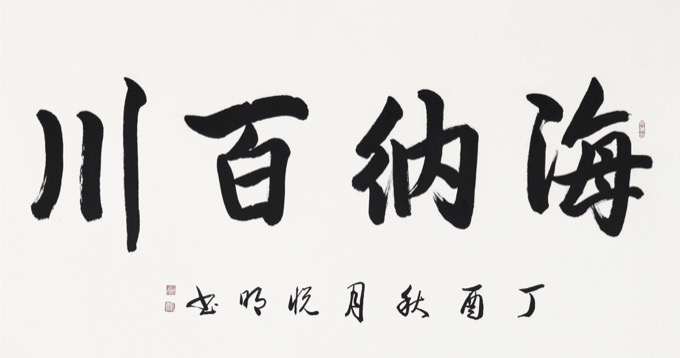 海纳百川
丁酉秋月悦明书